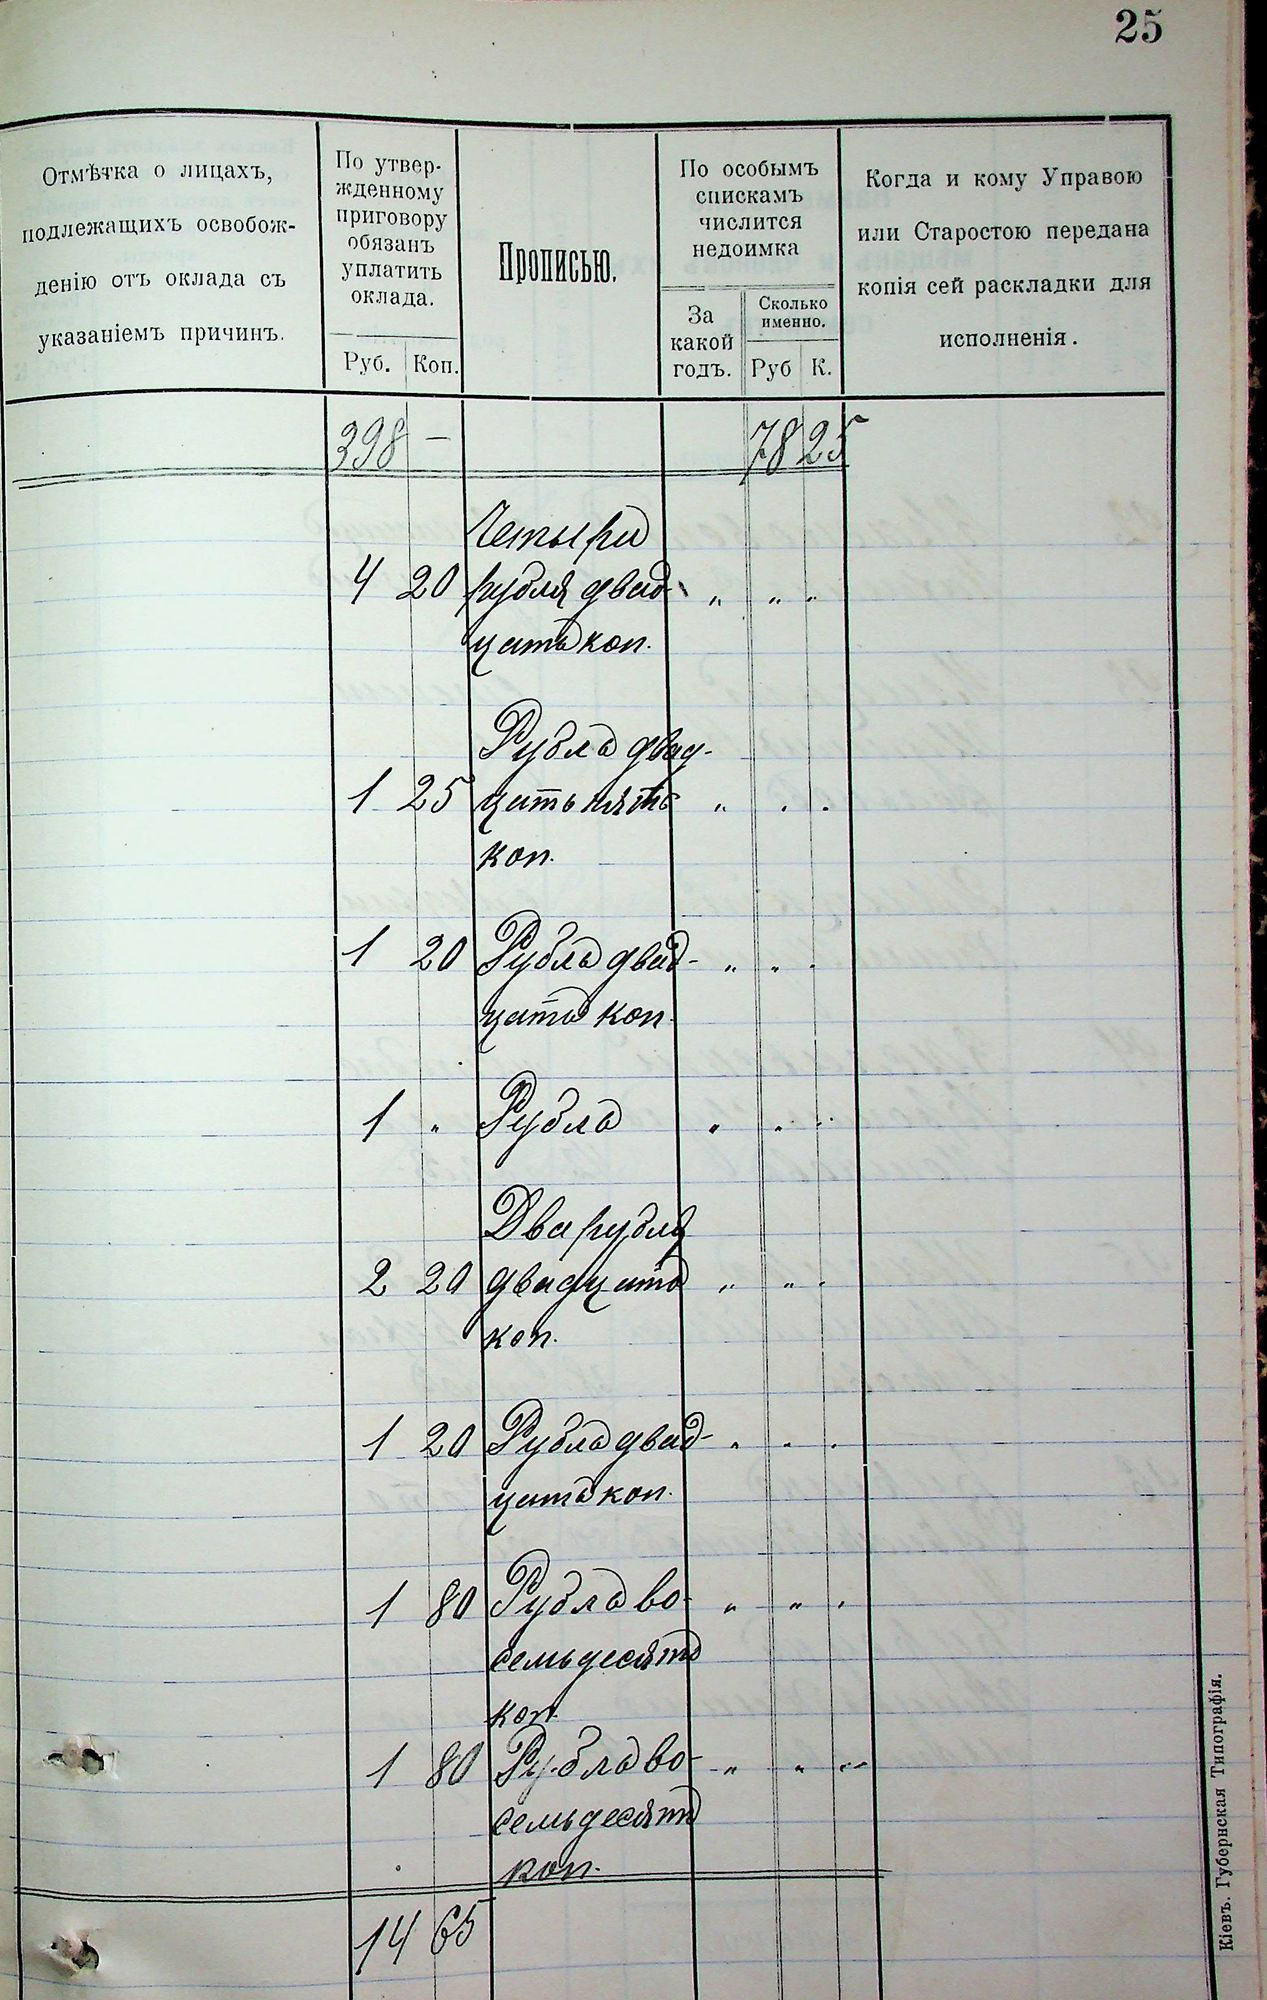 25
Отмѣтка о лицахъ,
подлежащихъ освобож-
денію отъ оклада съ
указаніемъ причинъ.
По утвер-
жденному
приговору
обязанъ
уплатить
оклада.
Руб. Коп.
Прописью.
По особымъ
спискамъ
числится
недоимка
За
какой
годъ.
Сколько
именно.
Руб К.
Когда и кому Управою
или Старостою передана
копія сей раскладки для
исполненія.
398 — 78 25
Четыри
4 20 рубля двад- „ „ „
цать коп.
Рубль двад-
1 25 цать пять „ „ „
коп.
1 20 Рубль двад- „ „ „
цать коп.
1 „ Рубль „ „ „
Два рубля
2 20 двадцать „ „ „
коп.
1 20 Рубль двад- „ „ „
цать коп.
1 80 Рубль во- „ „ „
семьдесять
коп.
1 80 Рубль во- „ „ „
семьдесять
коп.
14 65
Кіевъ. Губернская Типографія.